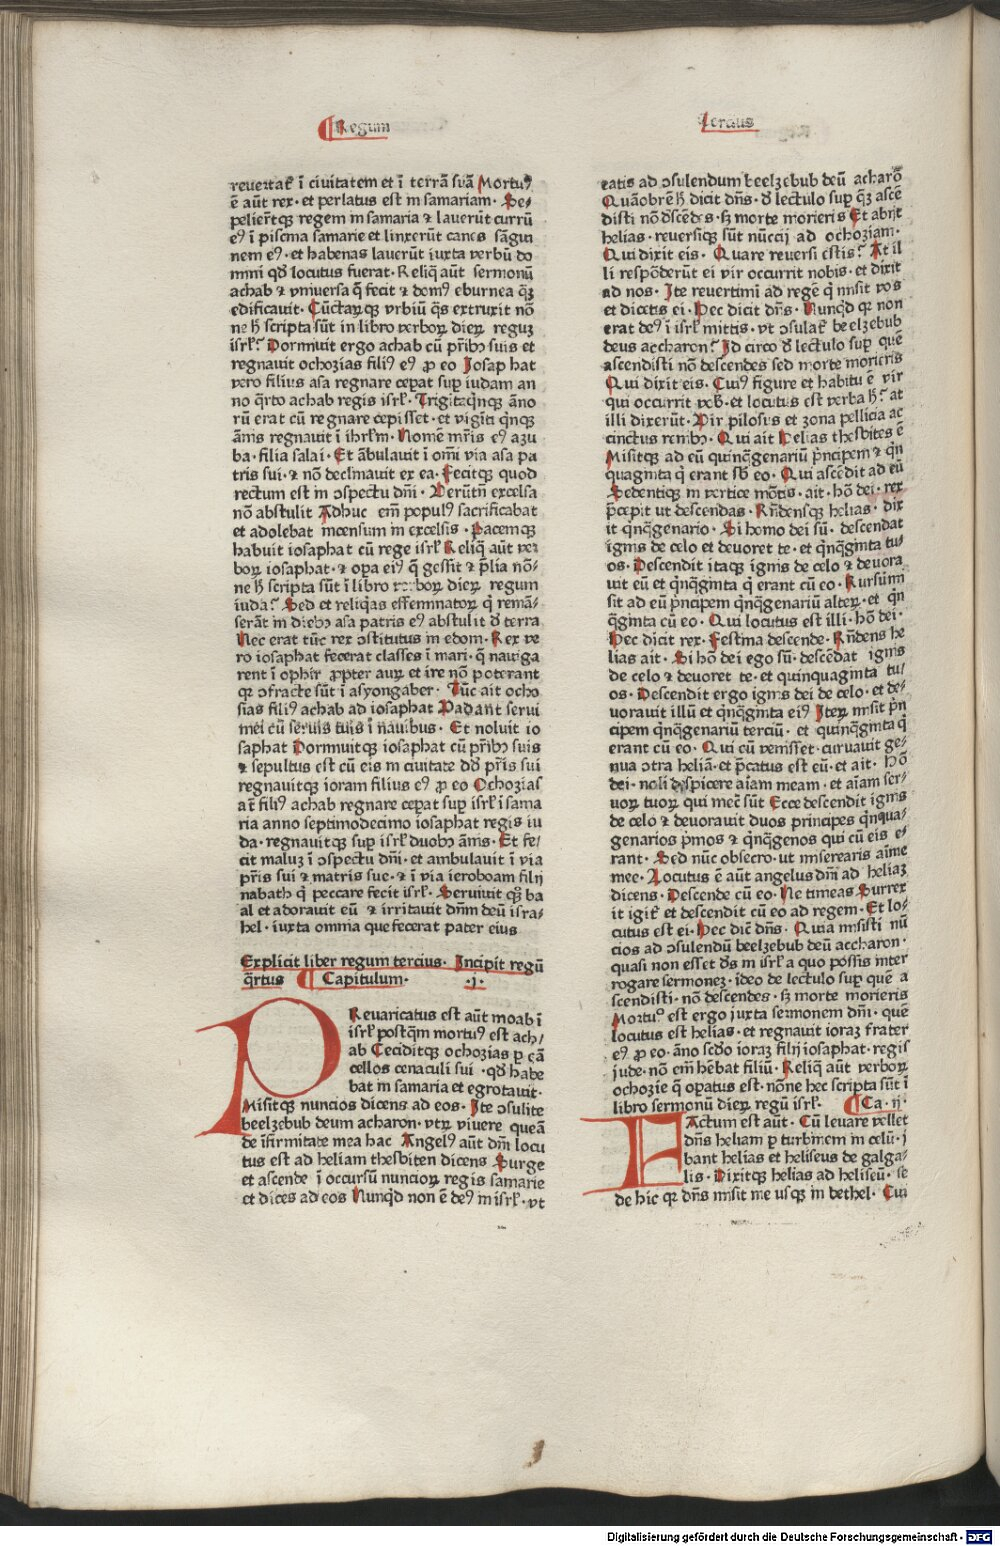 Regum
Tercius
reuertat᷑ ī ciuitatem et ī terrā suā Mortuꝰ
ē aūt rex· et perlatus est in samariam· Se⸗
pelierūtqꝫ regem in samaria ⁊ lauerūt currū
eꝰ ī piscina samarie et linxerūt canes sāgui
nem eꝰ· et habenas lauerūt iuxta verbū do
mini qd̄ locutus fuerat· Reliq̄ aūt sermonū
achab ⁊ vniuersa q̄ fecit ⁊ domꝰ eburnea qꝫ
edificauit· Cūctaꝝqꝫ vrbiū q̄s extruxit nō
ne h̄ scripta sūt in libro verboꝝ dieꝝ reguꝫ
isrl̓? Dormiuit ergo achab cū pr̄ibꝫ suis et
regnauit ochozias filiꝰ eꝰ ꝓ eo Iosaphat
vero filius asa regnare ceperat sup iudam an
no q̄rto achab regis isrl̓· Trigitaqinqꝫ āno
rū erat cū regnare cepisset· et vigīti qnqꝫ
ānis regnauit ī ihrl̓m· Nomē mr̄is eꝰ azu
ba· filia salai· Et ābulauit ī om̄i via asa pa
tris sui· ⁊ nō declinauit ex ea· Fecitqꝫ quod
rectum est in ꝯspectu dn̄i· Uerūtn̄ excelsa
nō abstulit Adhuc em̄ populꝰ sacrificabat
et adolebat incensum in excelsis· Pacemqꝫ
habuit iosaphat cū rege isrl̓ Reliq̄ aūt ver
boꝝ iosaphat· ⁊ opa eiꝰ q̄ gessit ⁊ p̄lia nō⸗
ne h̄ scripta sūt ī libro verboꝝ dieꝝ regum
iuda? Sed et reliqias effeminatoꝝ q̄ remā⸗
serāt in diebꝫ asa patris eꝰ abstulit ď terra
Nec erat tūc rex ꝯstitutus in edom· Rex ve
ro iosaphat fecerat classes ī mari· q̄ nauiga
rent ī ophir ꝓpter auꝝ et ire nō poterant
qꝛ ꝯfracte sūt ī asyongaber· Tūc ait ocho
sias filiꝰ achab ad iosaphat Vadant serui
mei cū seruis tuis ī nauibus· Et noluit io
saphat Dormiuitqꝫ iosaphat cū pr̄ibꝫ suis
⁊ sepultus est cū eis in ciuitate dd̓ pr̄is sui
regnauitqꝫ ioram filius eꝰ ꝓ eo Ochozias
aūt filiꝰ achab regnare ceperat sup isrl̓ ī sama
ria anno septimodecimo iosaphat regis iu
da· regnauitqꝫ sup isrl̓ duobꝫ ānis· Et fe⸗
cit maluꝫ ī ꝯspectu dn̄i· et ambulauit ī via
pr̄is sui ⁊ matris sue· ⁊ ī via ieroboam filij
nabath q̄ peccare fecit isrl̓· Seruiuit qꝫ ba
al et adorauit eū ⁊ irritauit dn̄m deū isra⸗
hel· iuxta omnia que fecerat pater eius
Explicit liber regum tercius· Incipit regū
q̄rtus Capitulum· ·j·
PReuaricatus est aūt moab ī
isrl̓ postq̄m mortuꝰ est ach⸗
ab Ceciditqꝫ ochozias ꝑ cā
cellos cenaculi sui ·qd̄ habe
bat in samaria et egrotauit·
Misitqꝫ nuncios dicens ad eos· Ite ꝯsulite
beelzebub deum acharon· vtꝝ viuere queā
de īfirmitate mea hac Angelꝰ aūt dn̄i locu
tus est ad heliam thesbiten dicens Surge
et ascende ī occursū nuncioꝝ regis samarie
et dices ad eos Nunqd non ē deꝰ in isrl̓· vt
eatis ad ꝯsulendum beelzebub deū acharō
Quāobrē h̄ dicit dn̄s· ď lectulo sup qꝫ ascē
disti nō dscēdes· sꝫ morte morieris Et abijt
helias· reuersiqꝫ sūt nūccij ad ochoziam·
Qui dixit eis· Quare reuersi estis? At il
li respōderūt ei vir occurrit nobis· et dixit
ad nos· Ite reuertimi ad regē q̄ misit vos
et dicetis ei· Hec dicit dn̄s· Nunqd qꝛ non
erat deꝰ ī isrl̓ mittis· vt ꝯsulat᷑ beelzebub
deus accharon? Id circo ď lectulo sup quē
ascendisti nō descendes sed morte morieris
Qui dixit eis· Cuiꝰ figure et habitu ē vir
qui occurrit vob̓· et locutus est verba h̄? at
illi dixerūt· Vir pilosus et zona pellicia ac
cinctus renibꝫ· Qui ait Helias thesbites ē
Misitqꝫ ad eū quinqgenariū pn̄cipem ⁊ qn̄
quaginta q̄ erant sb̓ eo· Qui ascēdit ad eū
Sedentiqꝫ in vertice mōtis· ait· hō dei· rex
p̄cepit ut descendas· Rn̄densqꝫ helias· dix
it qnqgenario· Si homo dei sū· descendat
ignis de celo et deuoret te· et qnqginta tu⸗
os· Descendit itaqꝫ ignis de celo ⁊ deuora
uit eū et qnqginta q̄ erant cū eo· Rursūmi
sit ad eū pn̄cipem qnqgenariū alteꝝ· et qn̄
qginta cū eo· Qui locutus est illi· hō dei·
Hec dicit rex· Festina descende· Rn̄dens he
lias ait· Si hō dei ego sū· descēdat ignis
de celo ⁊ deuoret te· et quinquaginta tu⸗
os· Descendit ergo ignis dei de celo· et de⸗
uorauit illū et qnqginta eiꝰ Iteꝝ misit pn̄
cipem qnqgenariū terciū· et quinqginta q̄
erant cū eo· Qui cū venisset· curuauit ge⸗
nua ꝯtra heliā· et p̄catus est eū· et ait· Hō
dei· noli despicere aīam meam· et aīam ser⸗
uoꝝ tuoꝝ qui mecū sūt Ecce descendit ignis
de celo ⁊ deuorauit duos principes qnqua⸗
genarios pmos ⁊ qnqgenos qui cū eis e⸗
rant· Sed nūc obsecro· ut miserearis aīme
mee· Locutus ē aūt angelus dn̄i ad heliaꝫ
dicens· Descende cū eo· Ne timeas Surrex
it igit᷑ et descendit cū eo ad regem· Et lo⸗
cutus est ei· Hec dic̄ dn̄s· Quia misisti nū
cios ad ꝯsulendū beelzebub deū accharon·
quasi non esset ds̄ in isrl̓ a quo possis inter
rogare sermonez· ideo de lectulo sup quē a
scendisti· nō descendes· sꝫ morte morieris
Mortuꝰ est ergo juxta sermonem dn̄i· quē
locutus est helias· et regnauit ioraꝫ frater
eꝰ ꝓ eo· āno scdo ioraꝫ filij iosaphat· regis
jude· nō em̄ hēbat filiū· Reliq̄ aūt verboꝝ
ochozie q̄ opatus est· nōne hec scripta sūt ī
libro sermonū dieꝝ regū isrl̓· Ca· ij·
FActum est aūt· Cū leuare vellet
dn̄s heliam ꝑ turbinem in celū· j
bant helias et heliseus de galga⸗
lis· Dixitqꝫ helias ad heliseū· se
de hic qꝛ dn̄s misit me usqꝫ in bethel· Cui
Digitalisierung gefördert durch die Deutsche Forschungsgemeinschaft - DFG